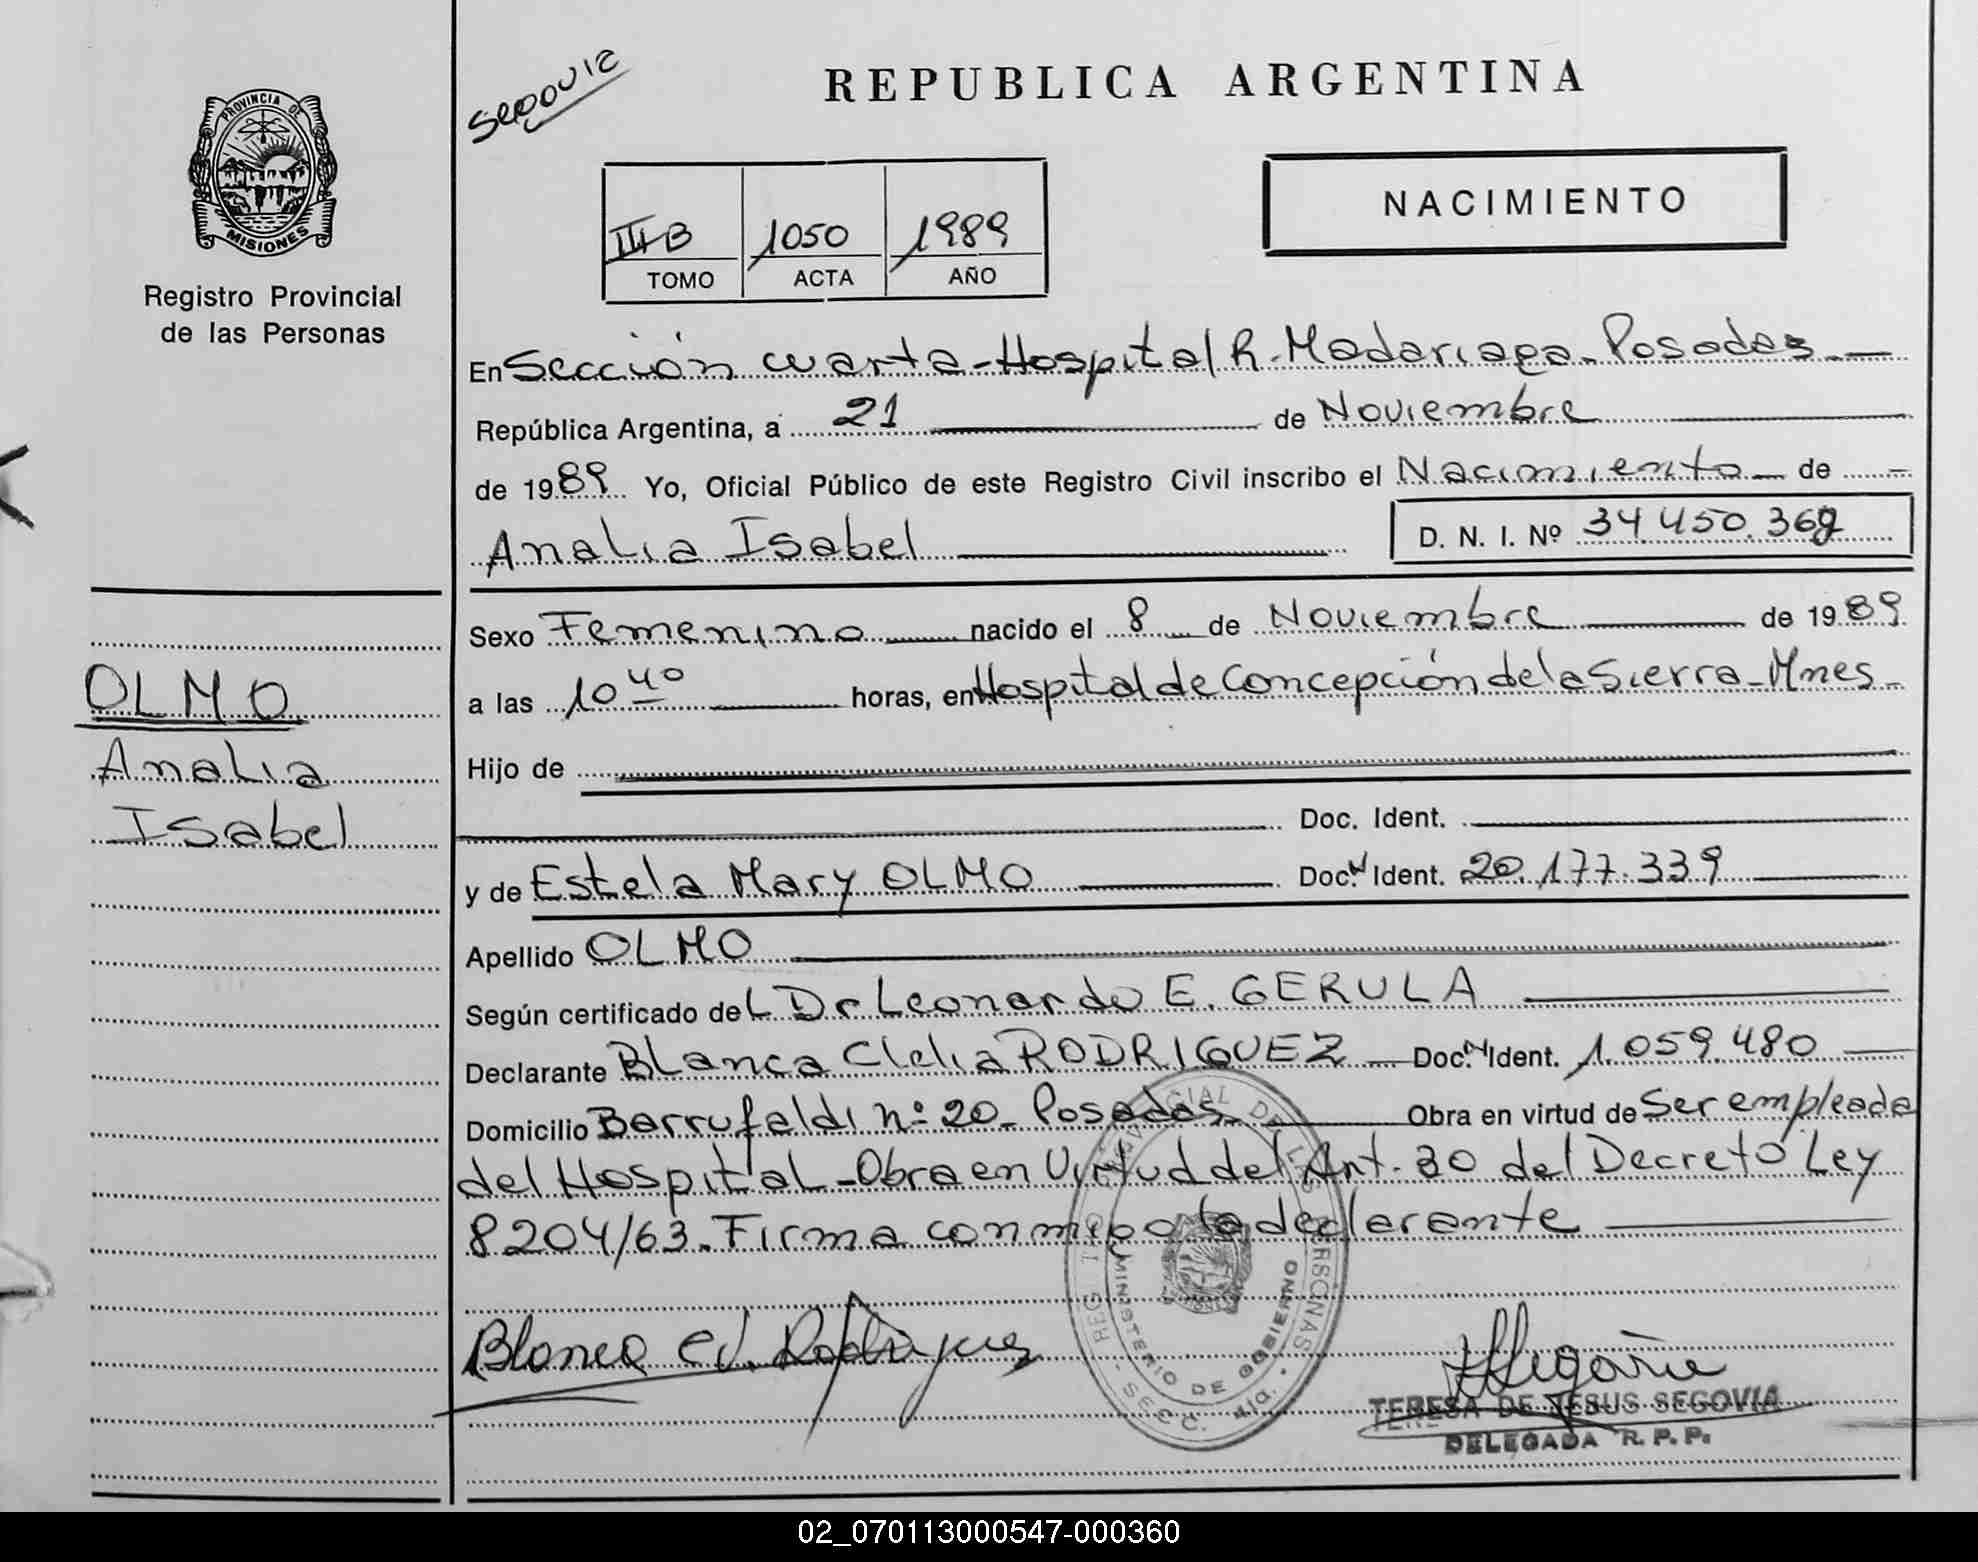 REPUBLICA ARGENTINA
PROVINCIA DE
MISIONES
Registro Provincial
de las Personas
III B 1050 1989
TOMO ACTA AÑO
NACIMIENTO
En Sección cuarta - Hospital R. Madariaga - Posadas -
República Argentina, a 21 de Noviembre
de 1989 Yo, Oficial Público de este Registro Civil inscribo el Nacimiento de
Analia Isabel D. N. I. Nº 34.450.369
Sexo Femenino nacido el 8 de Noviembre de 1989
a las 10 40 horas, en Hospital de Concepción de la Sierra - Mnes -
Hijo de
Doc. Ident.
y de Estela Mary OLMO Doc. N Ident. 20.177.339
Apellido OLMO
Según certificado del Dr Leonardo E. GERULA
Declarante Blanca Clelia RODRIGUEZ Doc. N Ident. 1.059.480
Domicilio Barrufaldi nº 20 - Posadas Obra en virtud de Ser empleada
del Hospital - Obra en Virtud del Art. 30 del Decreto Ley
8204/63. Firma conmigo la declarante
OLMO
Analia
Isabel
Blanca Cl. Rodriguez
MINISTERIO DE GOBIERNO
SECC. 4ta.
TERESA DE JESUS SEGOVIA
DELEGADA R. P. P.
02_070113000547-000360